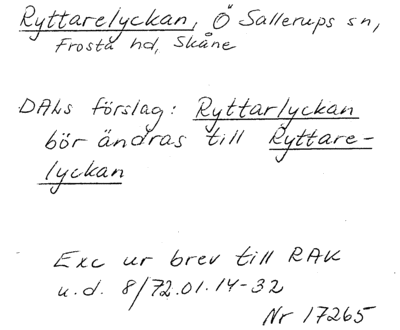 Ryttarelyckan, Ö Sallerups sn,
Frosta hd, Skåne
DALs förslag: Ryttarlyckan
bör ändras till Ryttare-
lyckan
Exc ur brev till RAK
u.d. 8/72.01.14-32
Nr 17265